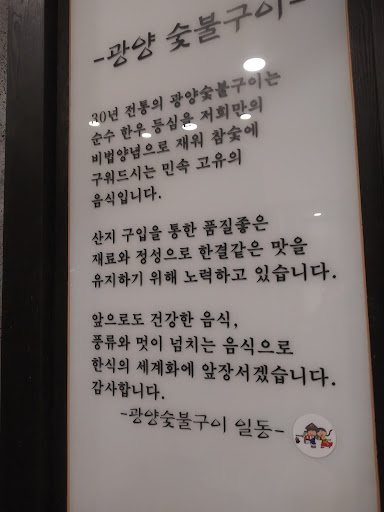 -광양 숯불구이-
30년 전통의 광양숯불구이는
순수 한우 등심을 저희만의
비법양념으로 재워 참숯에
구워드시는 민속 고유의
음식입니다.
산지 구입을 통한 품질좋은
재료와 정성으로 한결같은 맛을
유지하기 위해 노력하고 있습니다.
앞으로도 건강한 음식,
풍류와 멋이 넘치는 음식으로
한식의 세계화에 앞장서겠습니다.
감사합니다.
-광양숯불구이 일동-